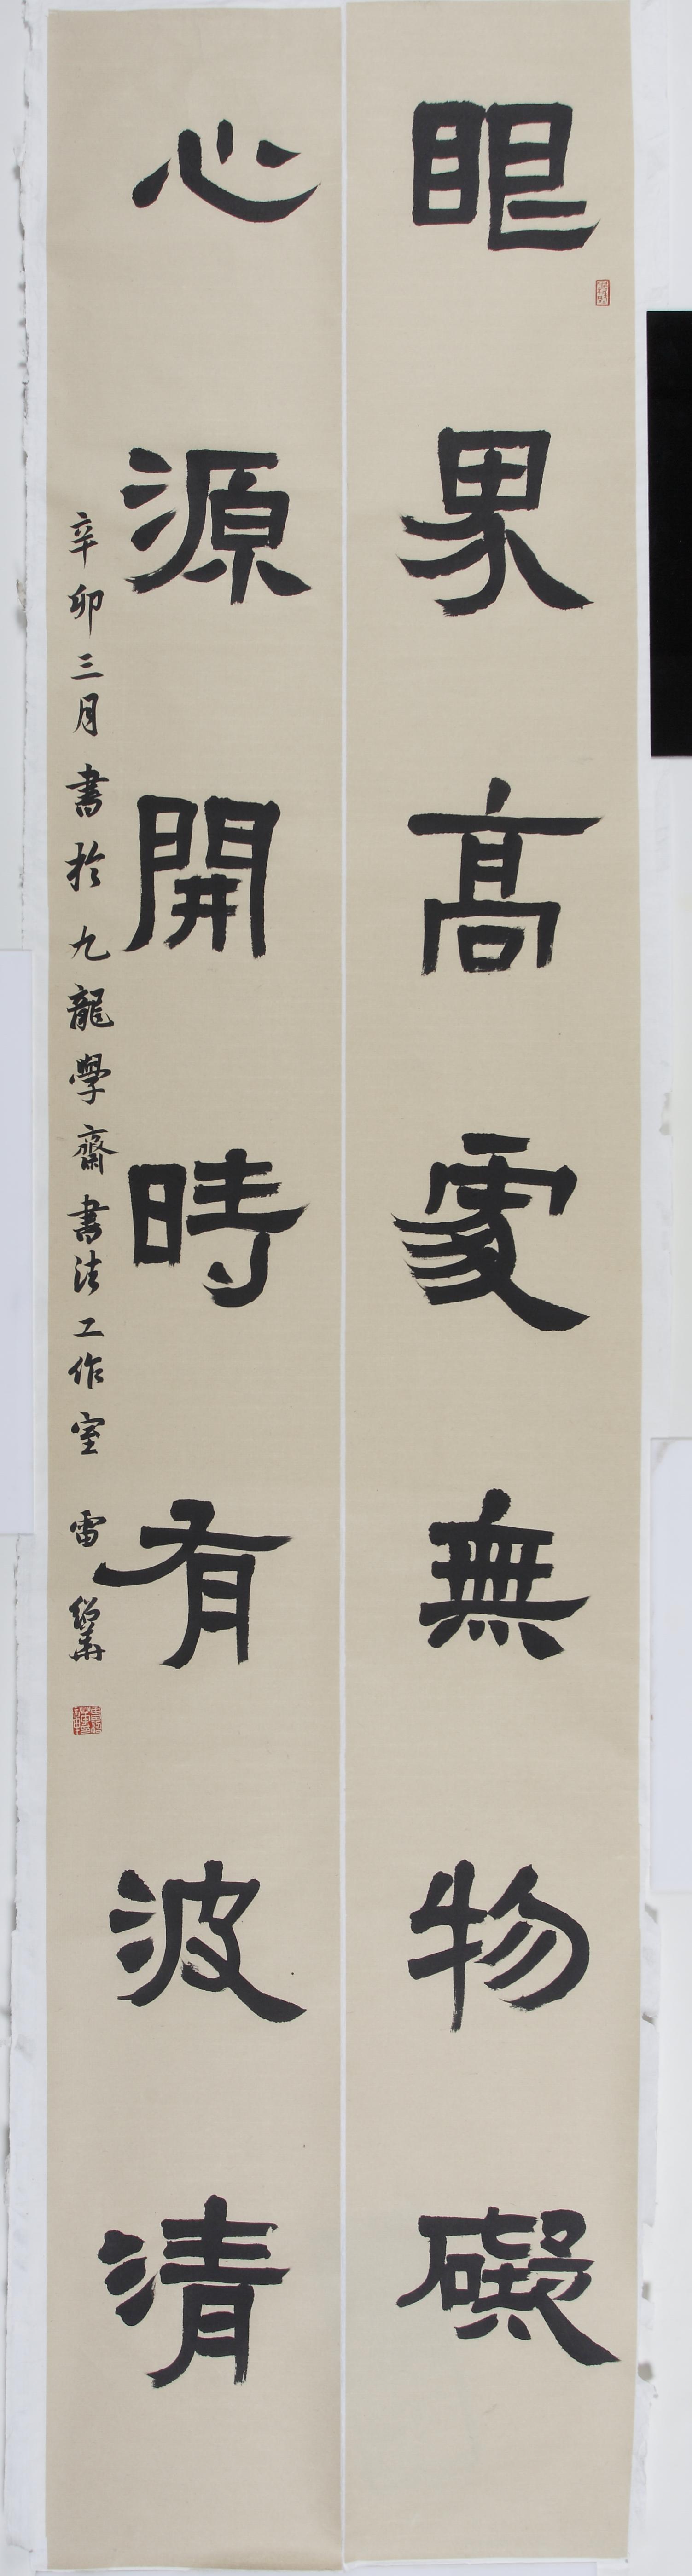 眼界高處無物礙
心源開時有波清
辛卯三月書於九龍學齋書法工作室 雷紹華